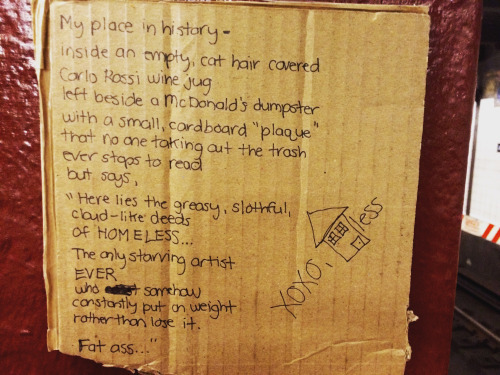 My place in history-
inside an empty, cat hair covered
Carlo Rossi wine jug
left beside a McDonald's dumpster
with a small, cardboard "plaque"
that no one taking out the trash
ever stops to read
but says,
"Here lies the greasy, slothful,
cloud-like deeds
of HOMELESS...
The only starving artist
EVER
who somehow
constantly put on weight
rather than lose it.
Fat ass..."
XOXO, less